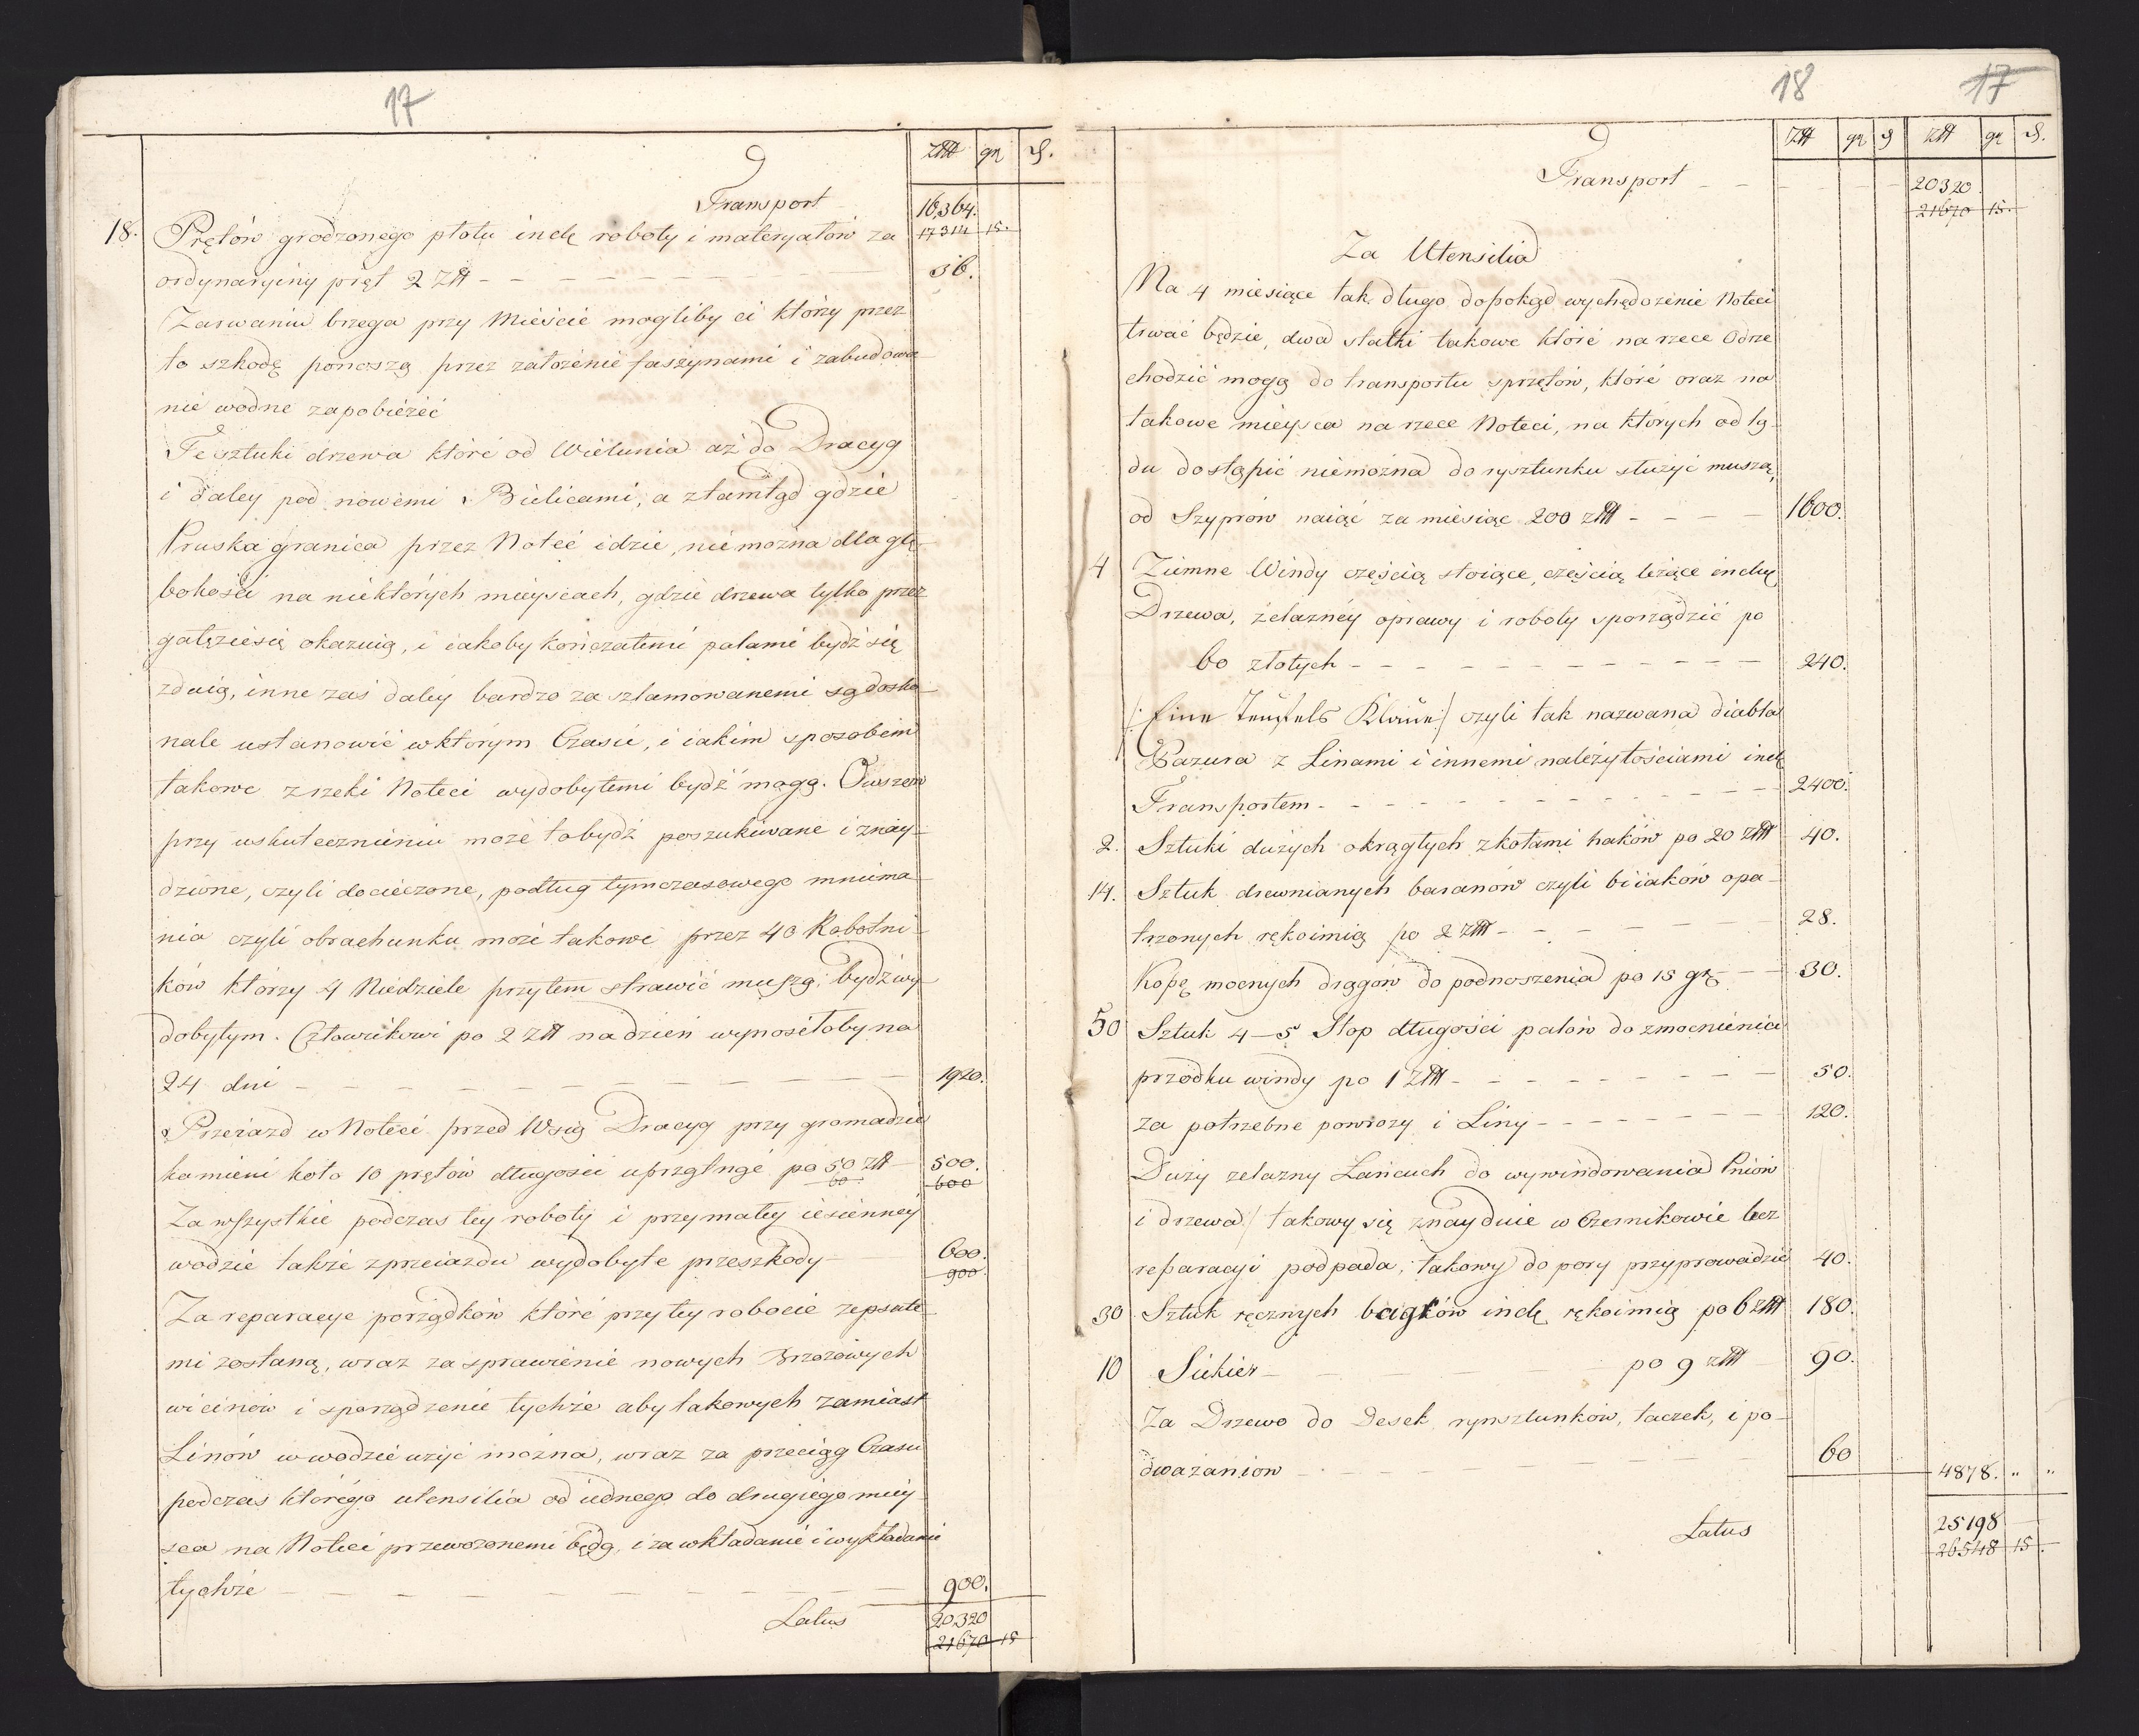 17
złł gr d.
Transport 16,364.
17314 15.
18. Prętów grodzonego płotu incl. roboty i materyałów za
ordynaryiny pręt 2 złł 36.
Zarwaniu brzega przy Mieście mogliby ci którzy przez
to szkodę ponoszą przez założenie faszynami i zabudowa-
nie wodne zapobieżeć
Te sztuki drzewa które od Wielunia aż do Dracyg
i daley pod nowemi Bielicami, a ztamtąd gdzie
Pruska granica przez Noteć idzie, niemożna dla głę-
bokości na niektórych mieyscach, gdzie drzewa tylko przez
gałęziesię okazuią, i iakoby kończatemi palami bydź się
zdaią, inne zaś daléy bardzo zaszlamowanemi są dosko-
nale ustanowić wktórym Czasie, i iakim sposobem
takowe zrzeki Noteci wydobytemi bydź mogą. Owszem
przy uskutecznieniu może tobydź poszukiwane i znay-
dzione, czyli docieczone, podług tymczasowego mniema-
nia czyli obrachunku może takowe przez 40 Robotni-
ków którzy 4 Niedziele przytem strawić muszą, bydź wy-
dobytym. Człowiekowi po 2 złł na dzień wynosiłoby na
24 dni 1920.
Przeiazd w Noteci przed Wsią Dracyg przy gromadzie
kamieni koło 10 prętów długości uprzątnąć po 50 złł 500.
60 600
Za wszystkie podczas tey roboty i przymałey iesienney
wodzie także zprzeiazdu wydobyte przeszkody 600.
900.
Za reparacye porządków które przy tey robocie zepsute-
mi zostaną, wraz za sprawienie nowych Brzozowych
wicinów i sporządzenie tychże aby takowych zamiast
Linów w wodzie użyć można, wraz za przeciąg Czasu
podczas którégo utensilia od iednego do drugiego miey-
sca na Noteci przewozonemi będą, i za wkładanie i wykładanie
tychże 900.
Latus 20,320
21670 15
18 17
złł gr d złł gr d.
Transport 20320.
21670 15.
Za Utensilia
Na 4 miesiące tak długo dopokąd wychędożenie Noteci
trwać będzie, dwa statki takowe które na rzece Odrze
chodzić mogą do transportu sprzętów, które oraz na
takowe mieysca na rzece Noteci, na których od lą-
du dostąpić niemożna do rysztunku służyć muszą,
od Szyprów naiąć za miesiąc 200 złł 1600.
4 Ziemne Windy częścią stoiące, częścią leżące incl.
Drzewa, żelaznéy oprawy i roboty sporządzić po
60 złotych 240.
/: Eine Teufels Klaue :/ czyli tak nazwana diabła
Pazura z Linami i innemi należytościami incl.
Transportem 2400.
2. Sztuki dużych okrągłych zkołami haków po 20 złł 40.
14. Sztuk drewnianych baranów czyli biiaków opa-
trzonych rękoimią po 2 złł 28.
Kopę mocnych drągów do podnoszenia po 15 gr. 30.
50 Sztuk 4–5 Stop długości palów do zmocnienia
przodku windy po 1 złł 50.
za potrzebne powrozy i Liny 120.
Duży zelazny Łańcuch do wywindowania Pniów
i drzewa / takowy się znayduie w Czernikowie lecz
reparacyi podpada, takowy do pory przyprowadzić 40.
30 Sztuk ręcznych bcągków incl. rękoimią po 6 złł 180.
10 Siekier po 9 złł 90.
Za Drzewo do Desek rynsztunków, taczek, i po-
dważaniów 60 4878. " "
Latus 25198
26548 15.